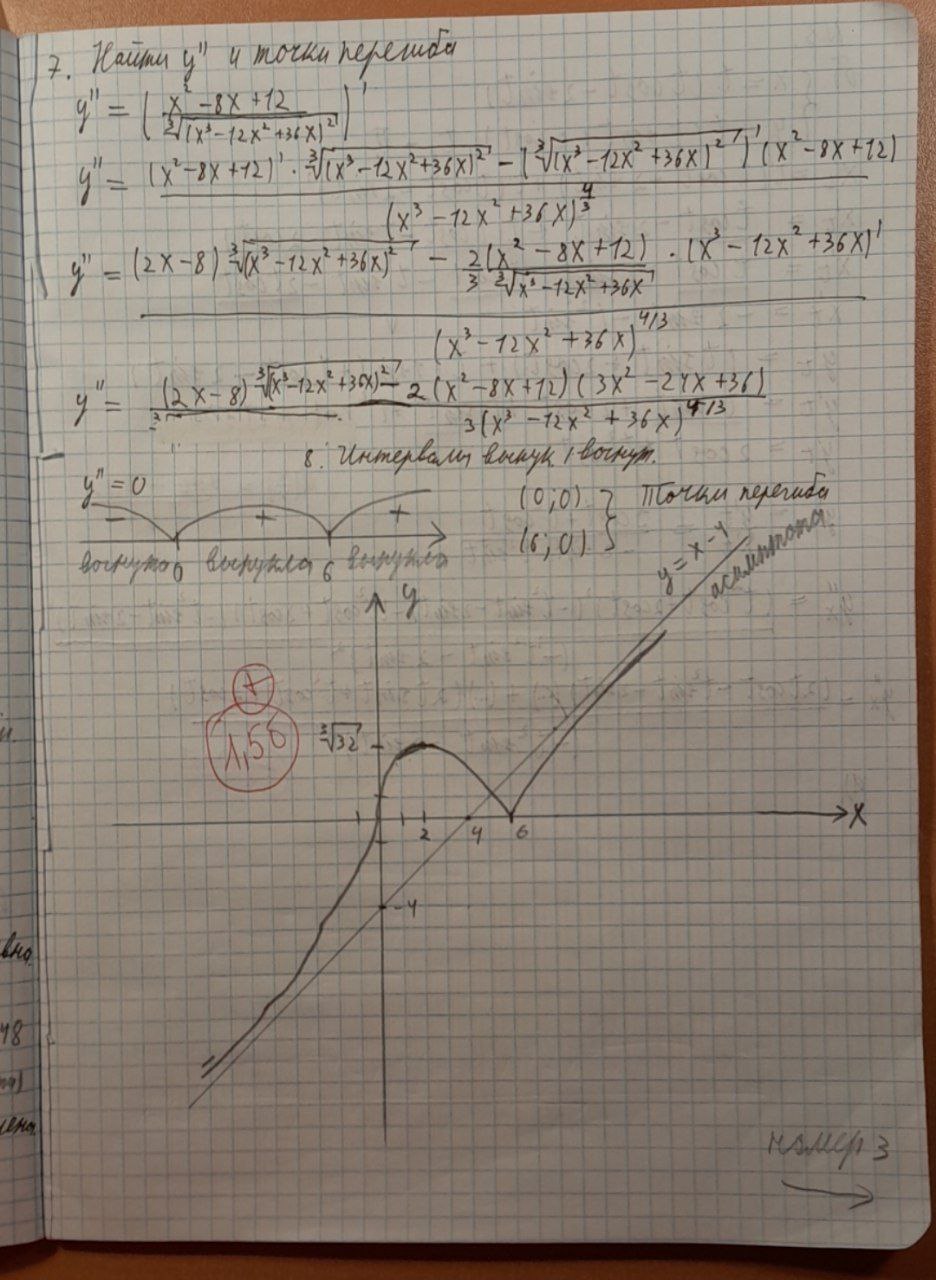 7. Найти y'' и точки перегиба
y'' = (x² -8x +12 / ∛(x³ -12x² +36x)²)'
y'' = (x² -8x +12)' · ∛(x³ -12x² +36x)² - (∛(x³ -12x² +36x)²)' (x² -8x +12) / (x³ -12x² +36x)^4/3
y'' = (2x -8) ∛(x³ -12x² +36x)² - 2(x² -8x +12) / 3 ∛x³ -12x² +36x · (x³ -12x² +36x)' / (x³ -12x² +36x)^4/3
y'' = (2x -8) ∛(x³ -12x² +36x)² - 2(x² -8x +12)(3x² -24x +36) / 3(x³ -12x² +36x)^4/3
8. Интервалы выпук. / вогнут.
y'' = 0
(0;0) } Точки перегиба
(6;0)
- + +
вогнуто 0 выпукла 6 выпукла
y = x-4
асимптота
y
+
1,56
∛32
2 4 6 x
-4
вна
48
номер 3